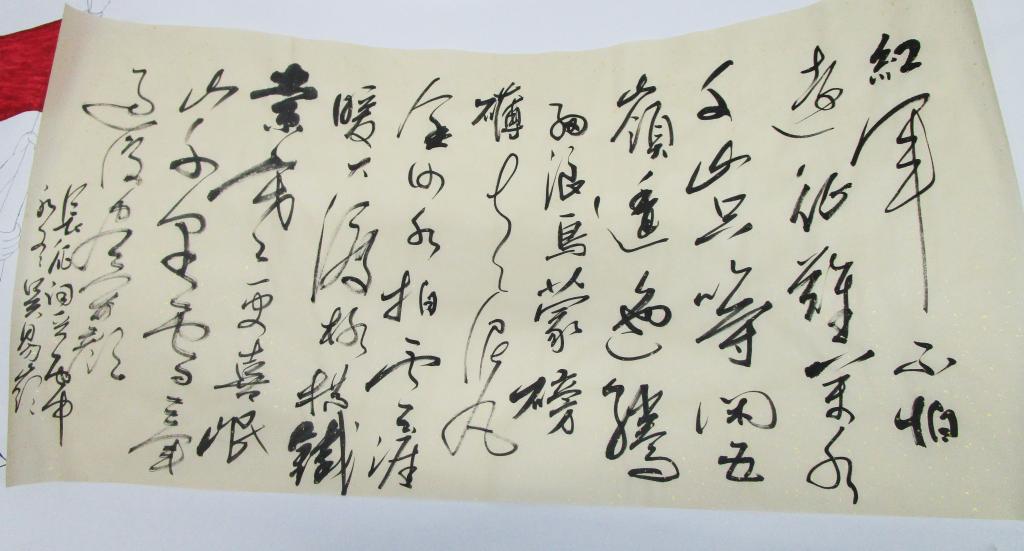 紅軍不怕
遠征難萬水
千山只等闲五
嶺逶迤騰
細浪烏蒙磅
礴走泥丸
金沙水拍雲涯
暖大渡桥横鐵
索寒更喜岷
山千里雪三軍
过後尽開颜
長征詞
吴易